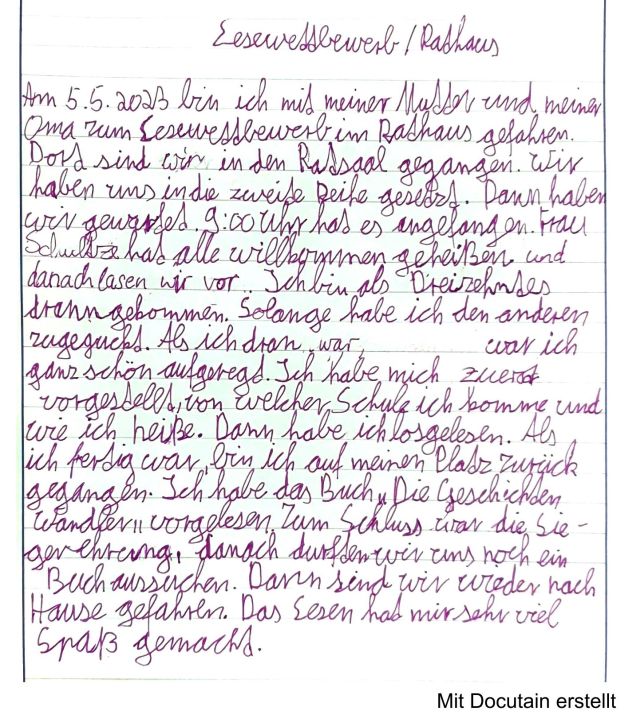 Lesewettbewerb / Rathaus
Am 5.5.2023 bin ich mit meiner Mutter und meiner
Oma zum Lesewettbewerb im Rathaus gefahren.
Dort sind wir in den Ratsaal gegangen. Wir
haben uns in die zweite Reihe gesetzt. Dann haben
wir gewartet. 9:00 Uhr hat es angefangen. Frau
Schultze hat alle willkommen geheißen und
danach lasen wir vor. Ich bin als Dreizehntes
drann gekommen. Solange habe ich den anderen
zugeguckt. Als ich dran war, war ich
ganz schön aufgeregt. Ich habe mich zuerst
vorgestellt, von welcher Schule ich komme und
wie ich heiße. Dann habe ich losgelesen. Als
ich fertig war, bin ich auf meinen Platz zurück
gegangen. Ich habe das Buch „Die Geschichten
wandler" vorgelesen. Zum Schluss war die Sie-
gerehrung, danach durften wir uns noch ein
Buch aussuchen. Dann sind wir wieder nach
Hause gefahren. Das Lesen hat mir sehr viel
Spaß gemacht.
Mit Docutain erstellt